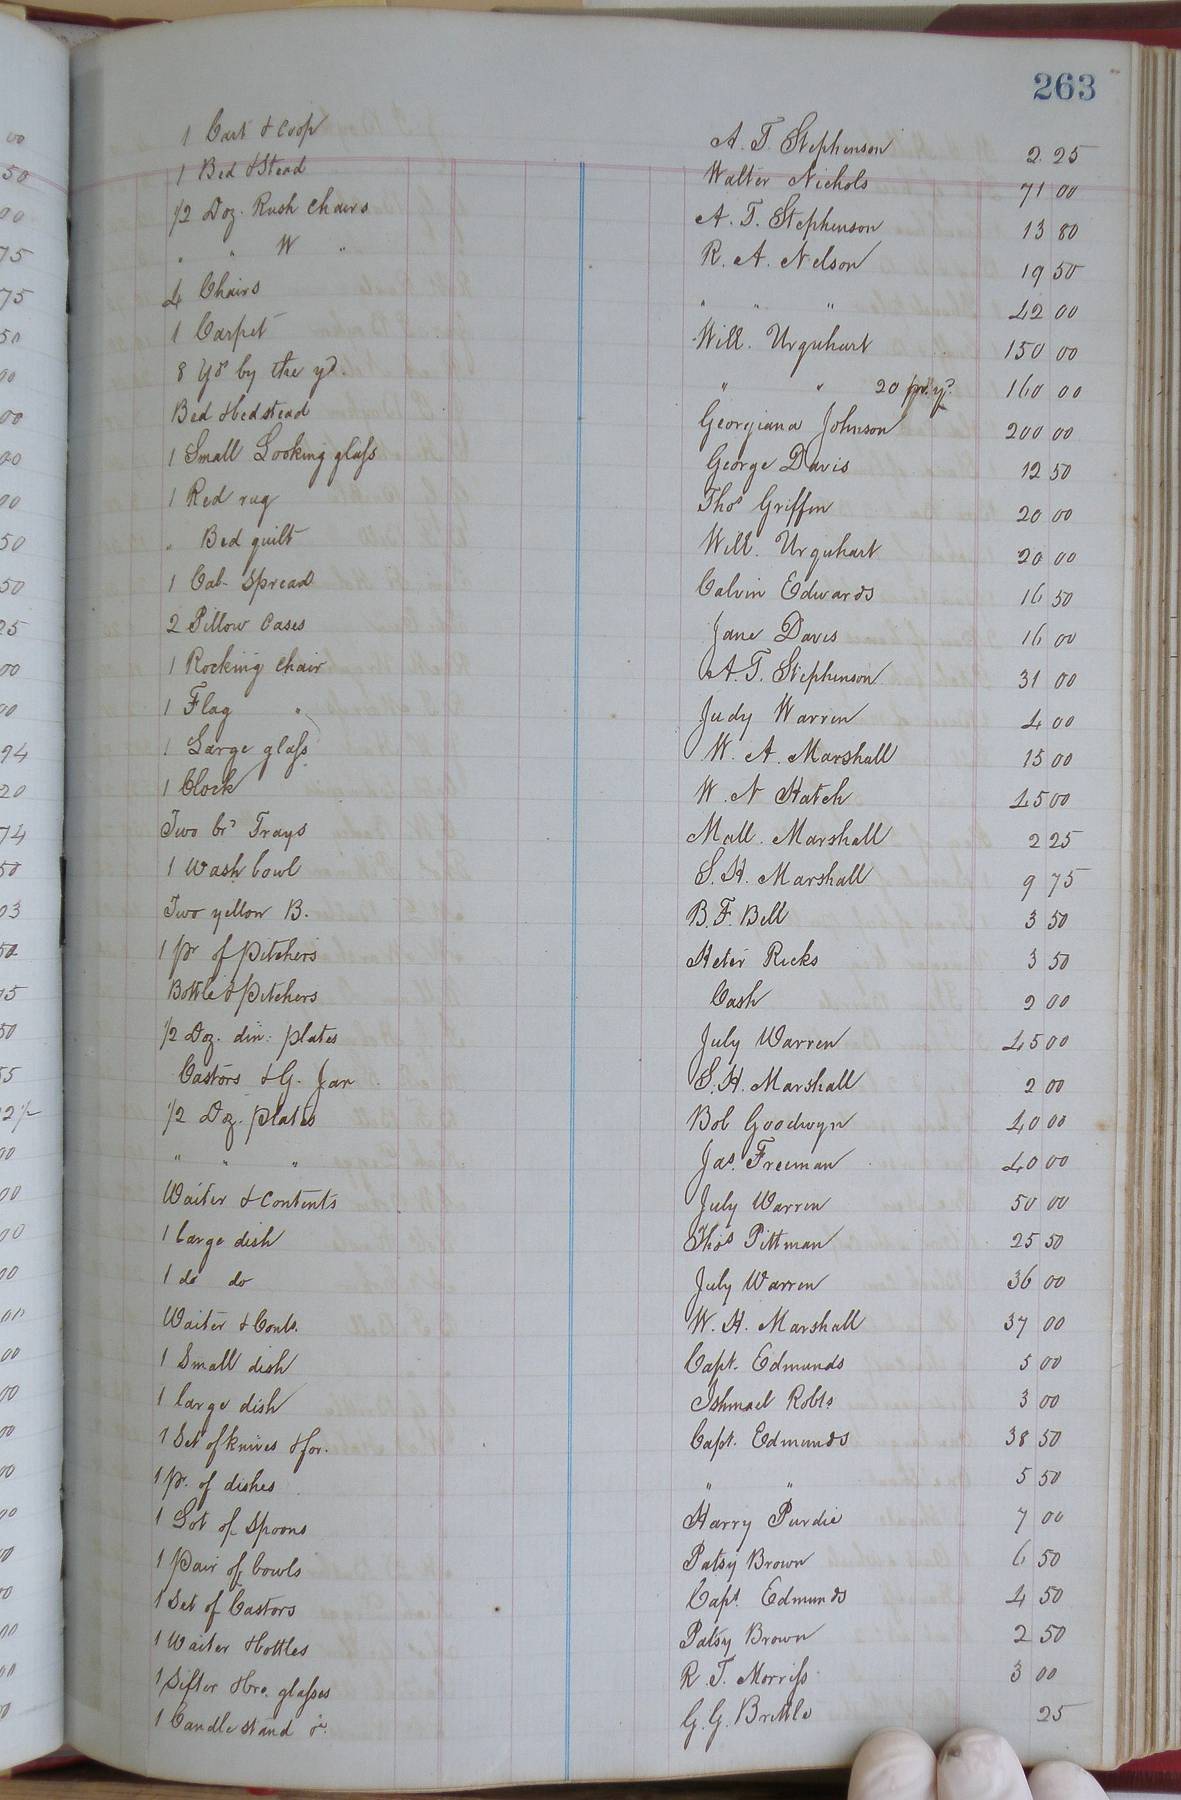 263
1 Cart & Coop A. T. Stephenson 2 25
1 Bed & Stead Walter Nichols 71 00
1/2 Doz. Rush Chairs A. T. Stephenson 13 80
" " W " R. A. Nelson 19 50
4 Chairs " " " 42 00
1 Carpet Will. Urquhart 150 00
8 yds by the yd. " " 20 pr. yd 160 00
Bed & bedstead Georgiana Johnson 200 00
1 Small Looking glass George Davis 12 50
1 Red rug Thos Griffin 20 00
" Bed quilt Will. Urquhart 20 00
1 Cab. Spread Calvin Edwards 16 50
2 Pillow Cases Jane Davis 16 00
1 Rocking Chair A. T. Stephenson 31 00
1 Flag " Judy Warren 4 00
1 Large glass W. A. Marshall 15 00
1 Clock W. N Hatch 45 00
Two br. Trays Mall. Marshall 2 25
1 Wash bowl S. H. Marshall 9 75
Two yellow B. B. F. Bell 3 50
1 pr of Pitchers Peter Ricks 3 50
Bottle & Pitchers Cash 2 00
1/2 Doz. din: plates July Warren 45 00
Castors & G. Jar S. H. Marshall 2 00
1/2 Doz. plates Bob Goodwyn 40 00
" " " Jas. Freeman 40 00
Waiter & Contents July Warren 50 00
1 large dish Thos Pittman 25 50
1 do do July Warren 36 00
Waiter & Conts. W. H. Marshall 37 00
1 Small dish Capt. Edmunds 5 00
1 large dish Ishmael Robts 3 00
1 Set of knives & for. Capt. Edmunds 38 50
1 pr. of dishes " " 5 50
1 Lot of Spoons Harry Purdie 7 00
1 Pair of bowls Patsy Brown 6 50
1 Set of Castors Capt. Edmunds 4 50
1 Waiter & bottles Patsy Brown 2 50
1 Sifter & bro. glasses R. T. Morriss 3 00
1 Candle stand &c. G. G. Brittle 25